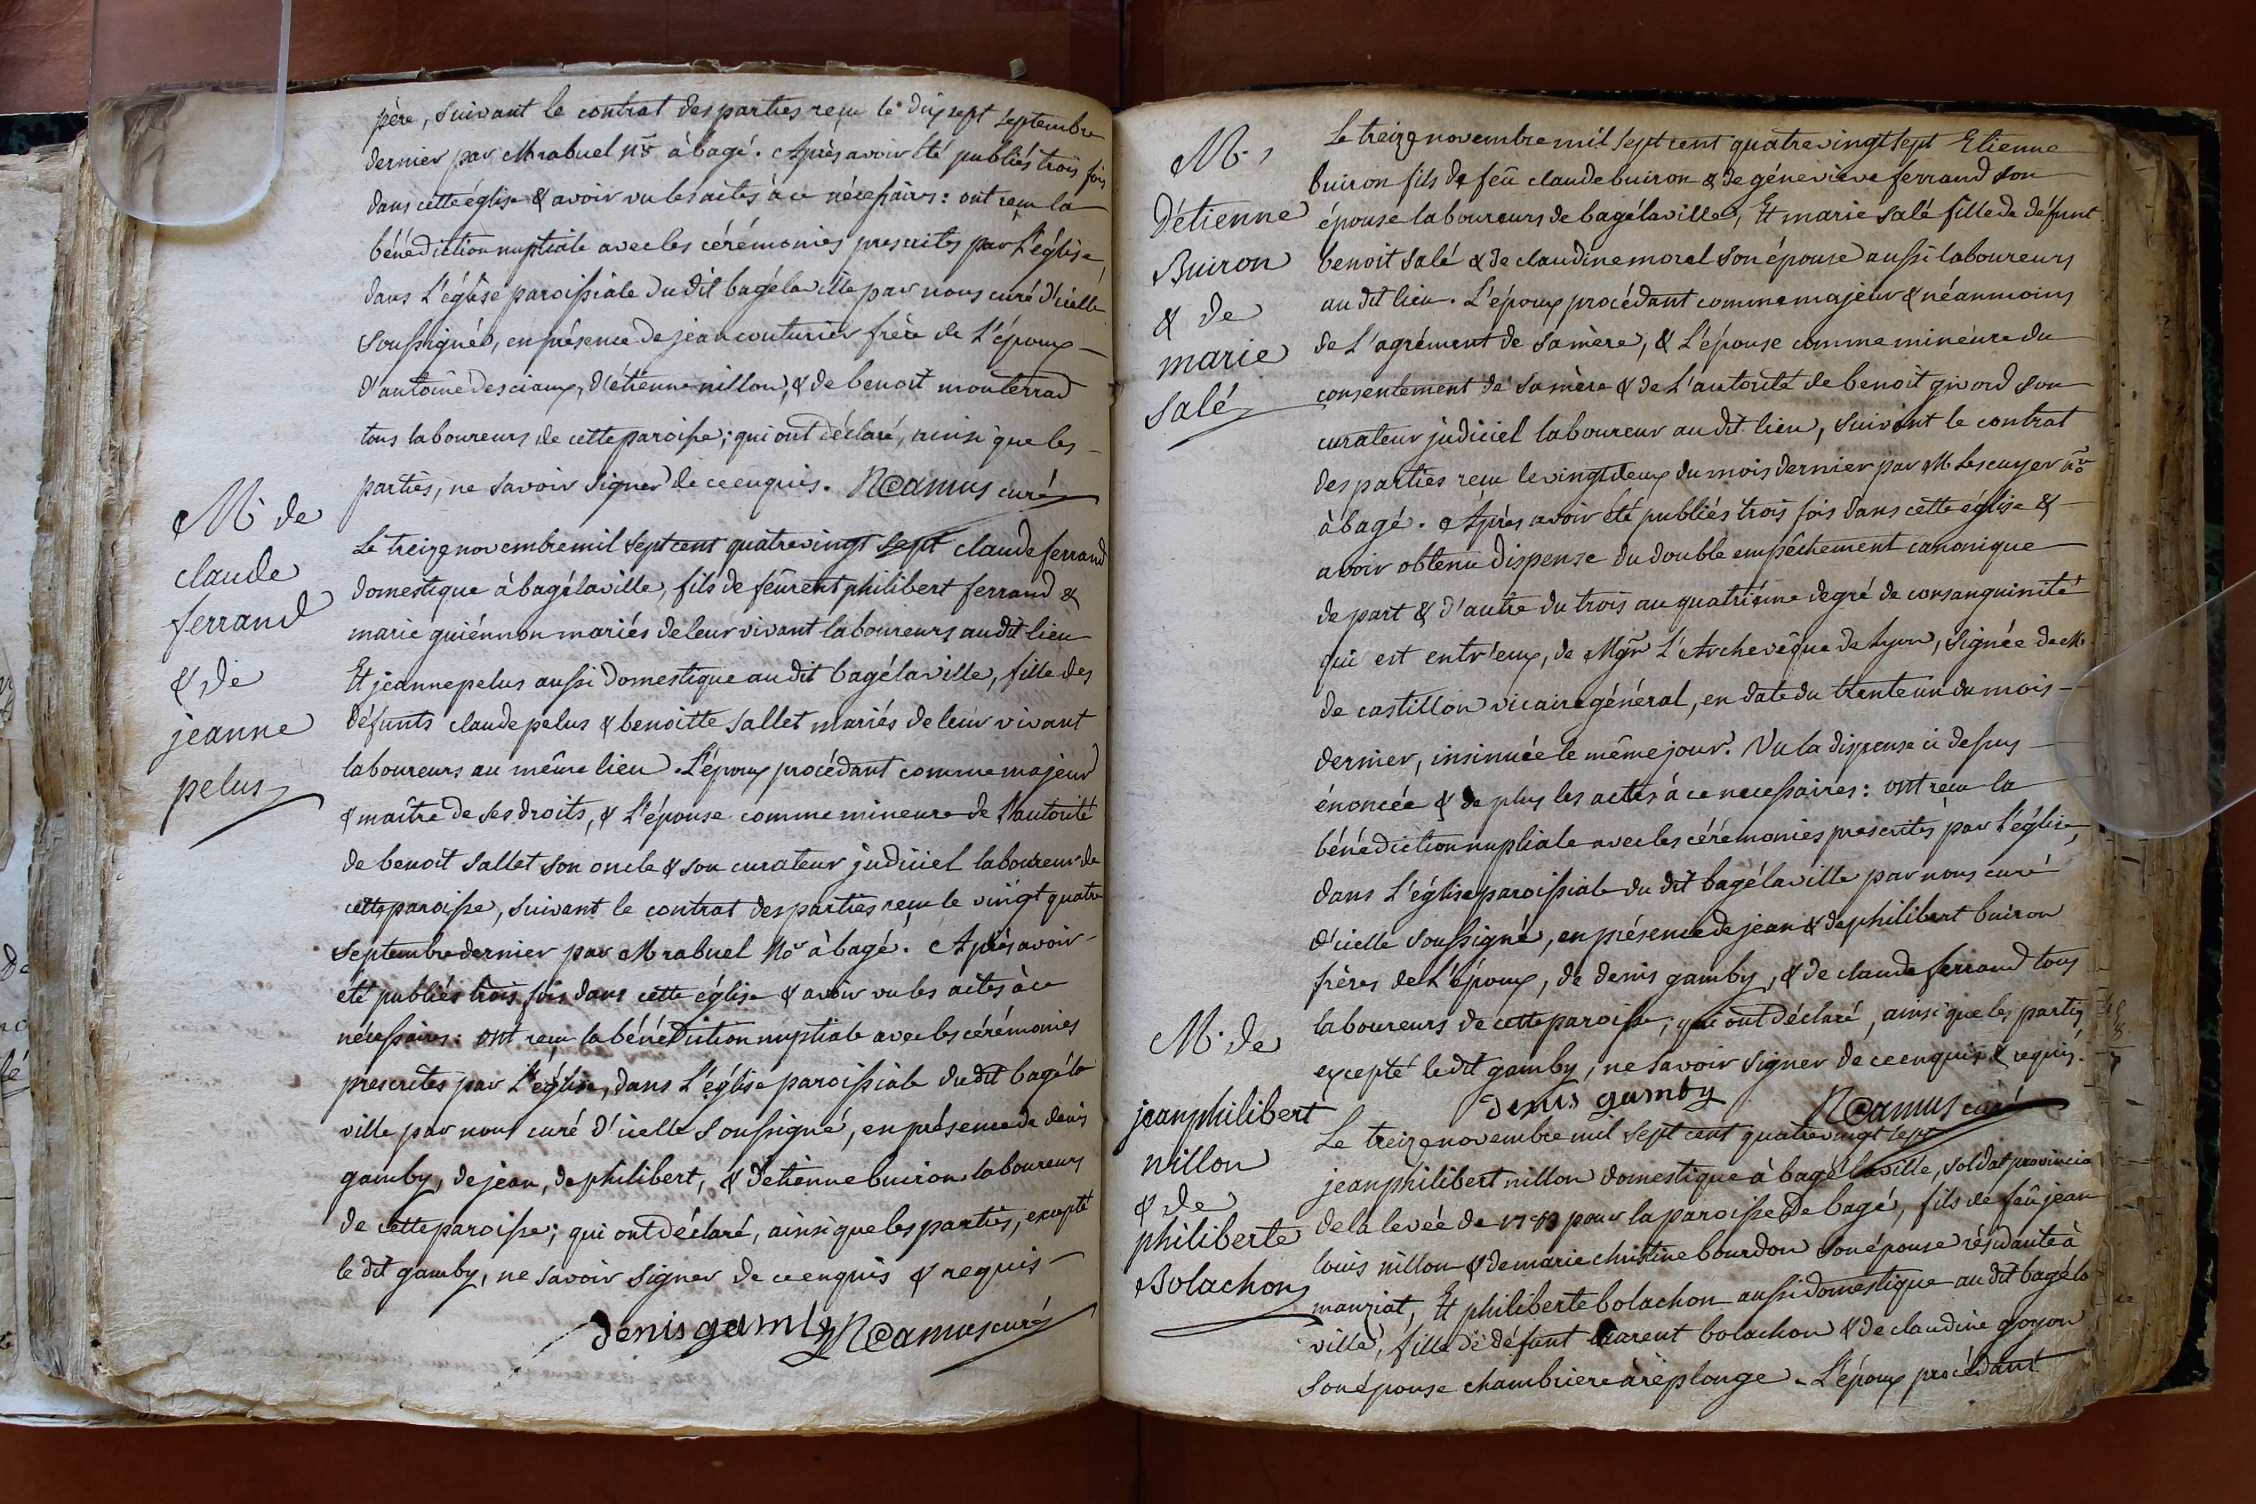 père, suivant le contrat des parties reçu le dix sept septembre
dernier par M rabuel nre à bagé. Après avoir été publiés trois fois
dans cette église & avoir vu les actes à ce nécessaires: ont reçu la
bénédiction nuptiale avec les cérémonies prescrites par L'église,
dans L'église paroissiale du dit bagélaville par nous curé d'icelle
soussigné, en présence de jean couturier frère de L'époux
d'antoine desciaux, d'étienne nillon, & de benoit monterrad
tous laboureurs de cette paroisse; qui ont déclaré, ainsi que les
parties, ne savoir signer de ce enquis. N Camus curé
M. de
claude
ferrand
& de
jeanne
pelus
Le treize novembre mil sept cent quatrevingt sept claude ferrand
domestique à bagélaville, fils de feurent philibert ferrand &
marie guiénnon mariés de leur vivant laboureurs au dit lieu
Et jeanne pelus aussi domestique au dit bagélaville, fille des
défunts claude pelus & benoitte sallet mariés de leur vivant
laboureurs au même lieu. L'époux procédant comme majeur
& maître de ses droits, & L'épouse comme mineure de L'autorité
de benoit sallet son oncle & son curateur judiciel laboureur de
cette paroisse, suivant le contrat des parties reçu le vingt quatre
septembre dernier par M rabuel No à bagé. Après avoir
été publiés trois fois dans cette église & avoir vu les actes à ce
nécessaires: ont reçu la bénédiction nuptiale avec les cérémonies
prescrites par L'église, dans L'église paroissiale du dit bagéla
ville par nous curé d'icelle soussigné, en présence de denis
gamby, de jean, de philibert, & d'etienne buiron laboureurs
de cette paroisse; qui ont déclaré, ainsi que les parties, excepté
le dit gamby, ne savoir signer de ce enquis & requis
denis gamby N Camus curé
M.
D'étienne
Buiron
& de
marie
salé
Le treize novembre mil sept cent quatrevingt sept Etienne
buiron fils de feu claude buiron & de géneviève ferrand son
épouse laboureurs de bagélaville, Et marie salé fille de défunt
benoit salé & de claudine morel son épouse aussi laboureurs
au dit lieu. L'époux procédant comme majeur & néanmoins
de L'agrément de sa mère, & L'épouse comme mineure du
consentement de sa mère & de L'autorité de benoit givord son
curateur judiciel laboureur au dit lieu, suivant le contrat
des parties reçu le vingtdeux du mois dernier par M Lescuyer nre
à bagé. Après avoir été publiés trois fois dans cette église &
avoir obtenu dispense du double empêchement canonique
de part & d'autre du trois au quatrième degré de consanguinité
qui est entr'eux, de Mgr L'Archevêque de Lyon, signée de M.
de castillon vicaire général, en date du trente un du mois
dernier, insinuée le même jour. Vu la dispense ci dessus
énoncée & de plus les actes à ce necessaires: ont reçu la
bénédiction nuptiale avec les cérémonies prescrites par L'église,
dans L'église paroissiale du dit bagélaville par nous curé
d'icelle soussigné, en présence de jean & de philibert buiron
frères de L'époux, de denis gamby, & de claude ferrand tous
laboureurs de cette paroisse; qui ont déclaré, ainsi que les parties
excepté le dit gamby, ne savoir signer de ce enquis & requis.
denis gamby N Camus curé
M. de
jeanphilibert
nillon
& de
philiberte
Bolachon
Le treize novembre mil sept cent quatrevingt sept
jeanphilibert nillon domestique à bagélaville, soldat provincia
de la levée de pour la paroisse de bagé, fils de feu jean
louis nillon & de marie christine bourdon son épouse résidante à
manziat, Et philiberte bolachon aussi domestique au dit bagéla
ville, fille de défunt laurent bolachon & de claudine goyon
son épouse chambriere à réplonge. L'époux procédant